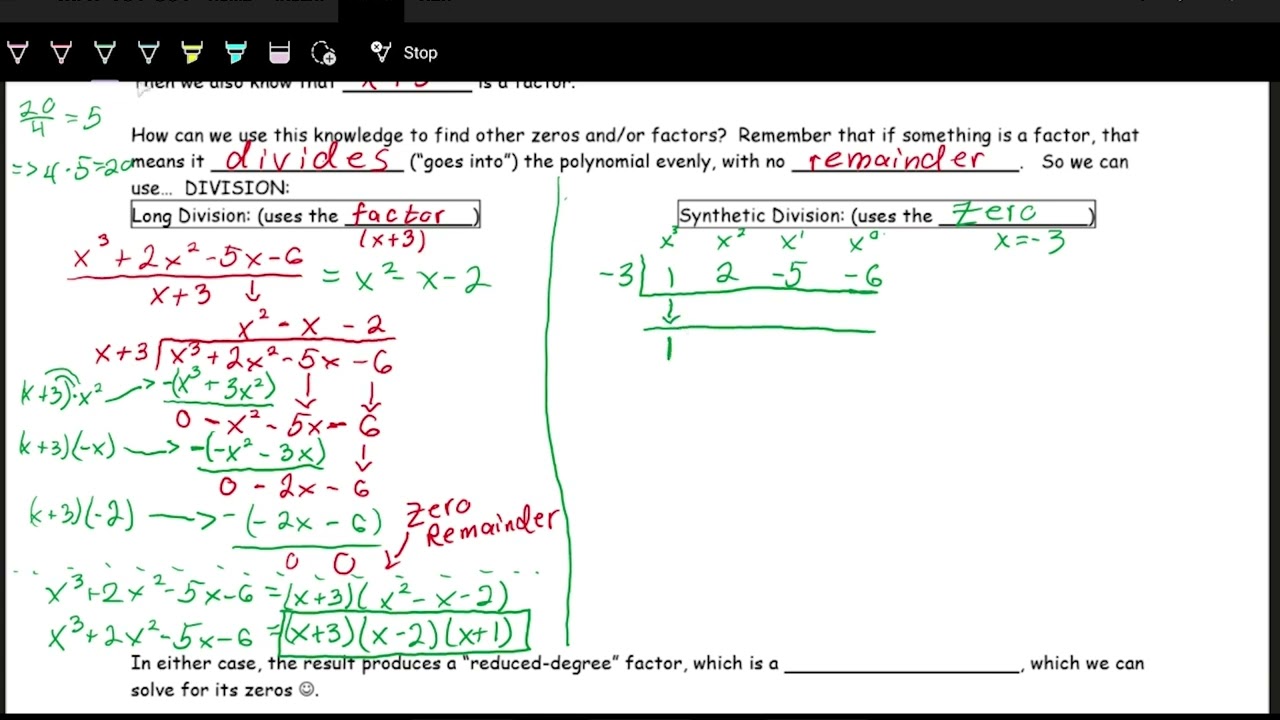 Stop
Then we also know that x + 3 is a factor.
20/4 = 5
=> 4 · 5 = 20
How can we use this knowledge to find other zeros and/or factors? Remember that if something is a factor, that
means it divides ("goes into") the polynomial evenly, with no remainder. So we can
use... DIVISION:
Long Division: (uses the factor)
(x+3)
x³ + 2x² - 5x - 6
x + 3
= x² - x - 2
x² - x - 2
x + 3 x³ + 2x² - 5x - 6
(x+3)·x² -> -(x³ + 3x²)
0 - x² - 5x - 6
(x+3)(-x) -> -(-x² - 3x)
0 - 2x - 6
(x+3)(-2) -> -(-2x - 6)
0 0
Zero
Remainder
x³ + 2x² - 5x - 6 = (x+3)(x² - x - 2)
x³ + 2x² - 5x - 6 = (x+3)(x-2)(x+1)
Synthetic Division: (uses the Zero)
x = -3
x³ x² x¹ x⁰
-3 1 2 -5 -6
1
In either case, the result produces a "reduced-degree" factor, which is a ____________, which we can
solve for its zeros ☺.